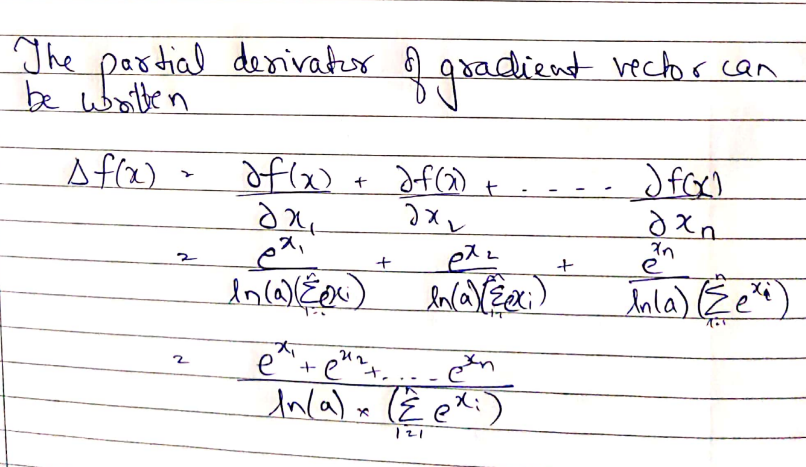 The partial derivator of gradient vector can
be written
Δf(x) = ∂f(x)/∂x₁ + ∂f(x)/∂x₂ + . . . . ∂f(x)/∂xₙ
= e^x₁/ln(a)(∑_{i=1}^{n} e^xi) + e^x₂/ln(a)(∑_{i=1}^{n} e^xi) + e^xn/ln(a)(∑_{i=1}^{n} e^xi)
= e^x₁ + e^x₂ + . . . . e^xn/ln(a) × (∑_{i=1}^{n} e^xi)